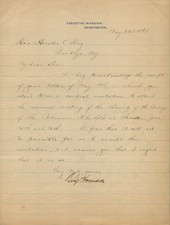 EXECUTIVE MANSION
WASHINGTON
May 21st 189
Hon Horatio C. King
Brooklyn, N.Y.
My dear Sir:
I beg to acknowledge the receipt
of your letter of May 19th, which
your cordial invitation to attend the
annual meeting of the Society of the Army
of the Potomac to be held at
and 16th. I fear that it will not
be possible for me to accept this
invitation, and assure you that I regret
that it is so.
Very truly yours,
Benj Harrison